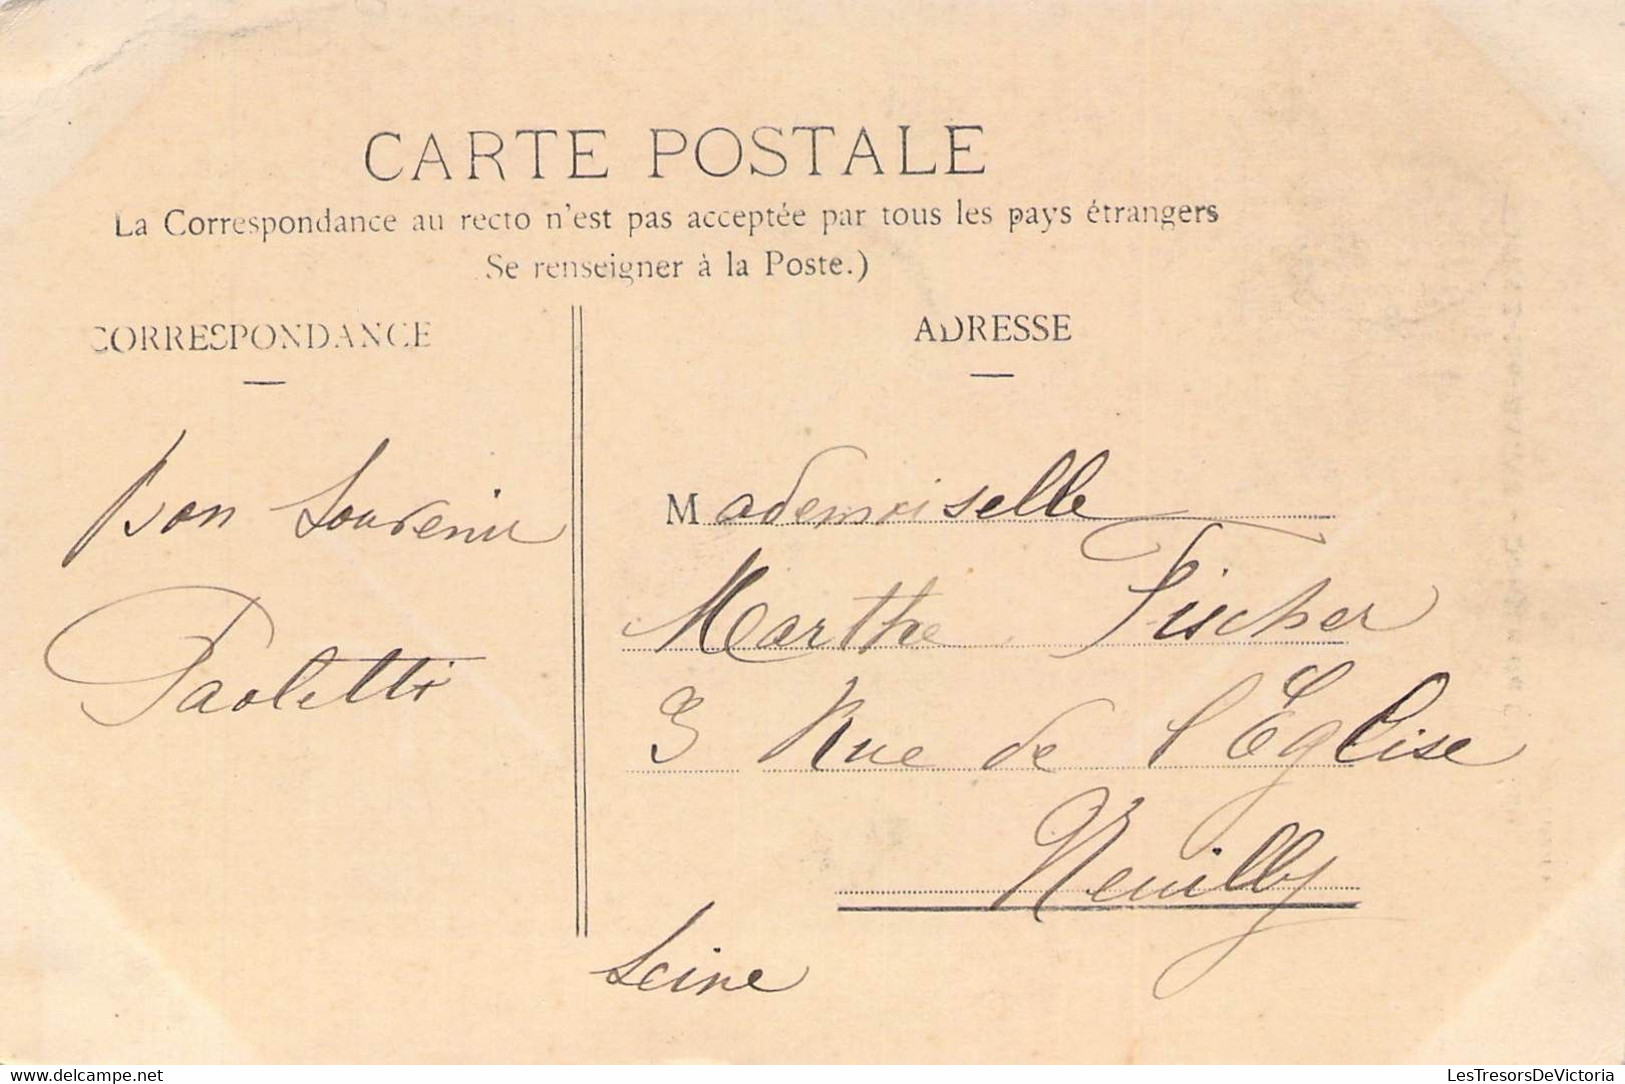 CARTE POSTALE
La Correspondance au recto n'est pas acceptée par tous les pays étrangers
Se renseigner à la Poste.)
CORRESPONDANCE
ADRESSE
Bon Souvenir
Paoletti
Mademoiselle
Marthe Fischer
3 Rue de l'Eglise
Neuilly
Seine
delcampe.net
LesTresorsDeVictoria